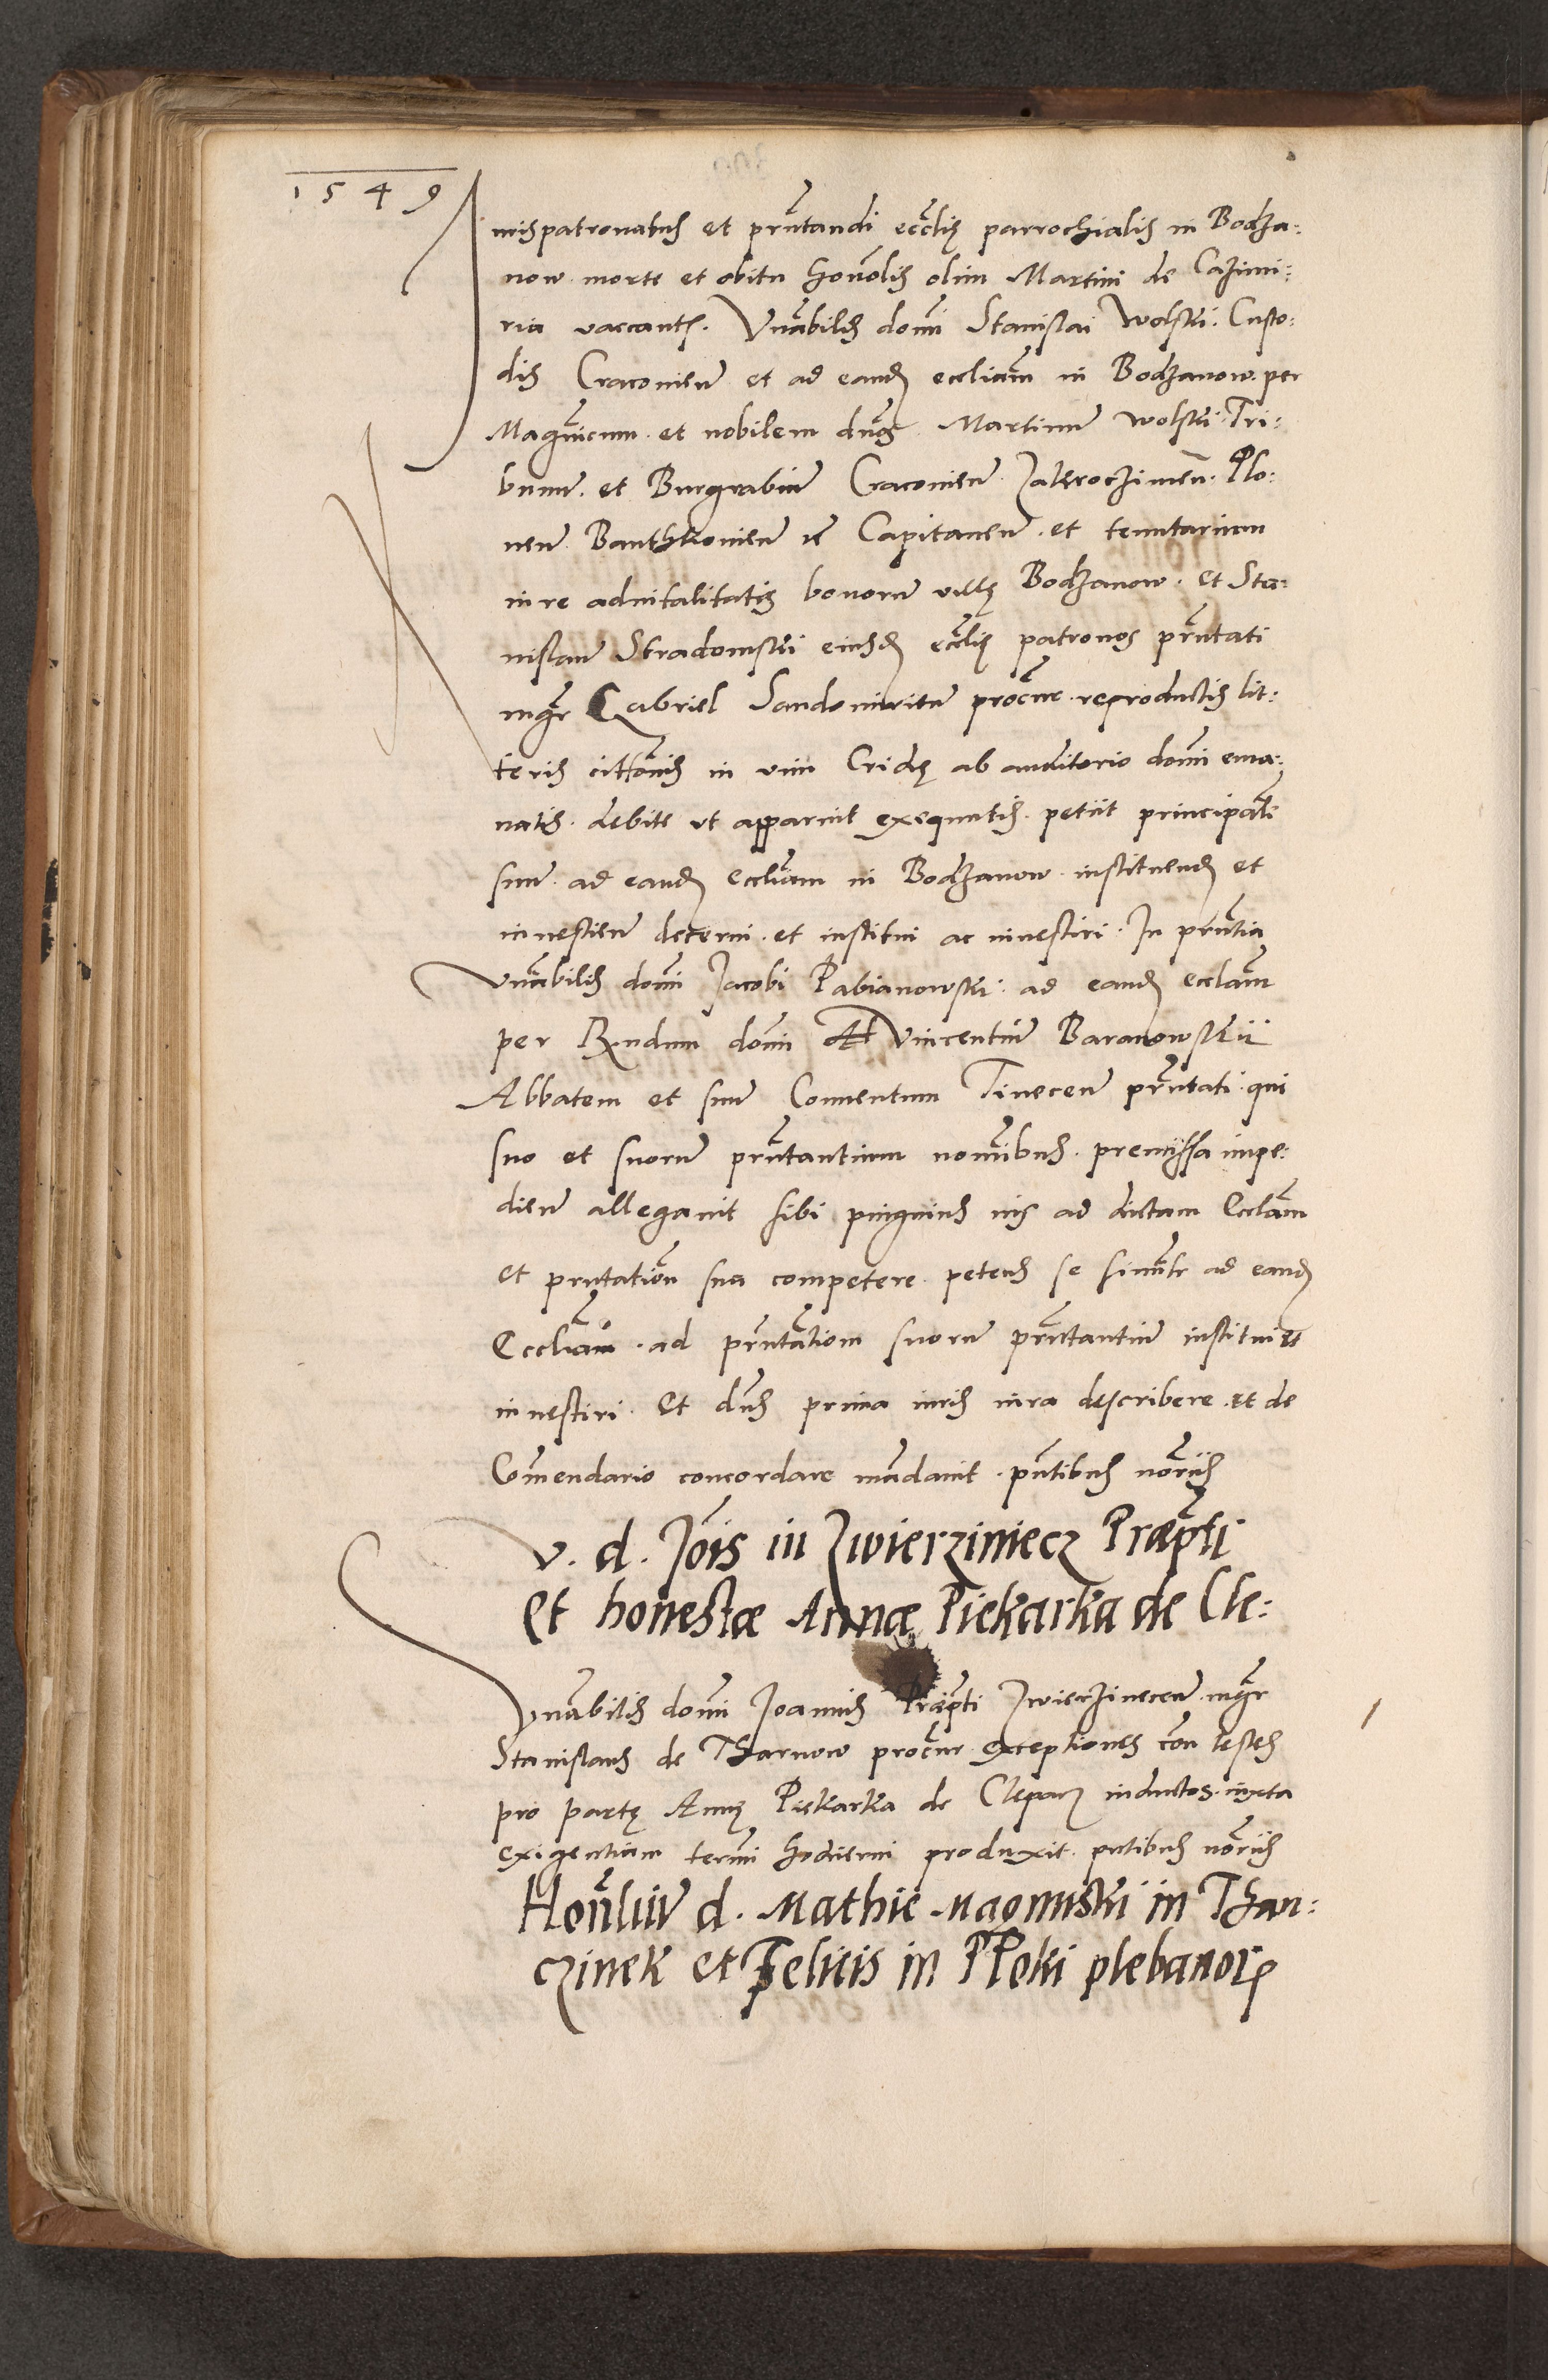 1549
Iuris patronatus et prntandi ecclie parrochialis in Bodza:
now morte et obitu honolis olim Martini de Cazimi:
ria vaccantis. Vnabilis domi Stanislai Wolski. Custo:
dis Cracouien et ad eand eccliam in Bodzanow. per
Magnicum. et nobilem dnos Martinum Wolski. Tri:
bunum. et Burgrabium Cracouien Zakroczimen. Plo:
nen Capitaneum. et tenutarium
iure aduitalitatis bonorum ville Bodzanow. et Sta:
nislaum Stradomski eiusd ecclie patronos prntati
mgr Gabriel Sandomiritanus procur. reproductis lit:
teris citationis in vim Cride ab auditorio domi ema:
natis. debite vt apparuit exequutis. petiit principalem
suum. ad eand eccliam in Bodzanow. instituend et
inuestien decerni. et institui ac inuestiri. In prntia
Vnabilis domi Jacobi Pabianowski. ad eand ecclam
per Rndum domi Vincentium Baranowskii
Abbatem et suum Conuentum Tinecen prntati. qui
suo et suorum prntantium nomibus. premissa impe:
dien allegauit sibi pinguius ius ad dictam Ecclam
et prntation sua competere. petens se simltr ad eand
Eccliam. ad prntationem suorum prntantium institui et
inuestiri. Et dnus prima iuris iura describere. et de
Comendario concordare mandauit. pntibus noriis
v. d. Jois in Zwierziniecz Præpti
Et honestæ Annæ Piekarka de Cle:
Vnabilis domi Joannis Præpti Zwierzinecen. mgr
Stanislaus de Tharnow procur exceptiones con testes
pro parte Anne Piekarka de Cleparz inductos. iuxta
exigentiam termi hodierni produxit. pntibus noriis
Honlium d. Mathie Nagorski in Than:
czinek et Felicis in Ploki plebanor